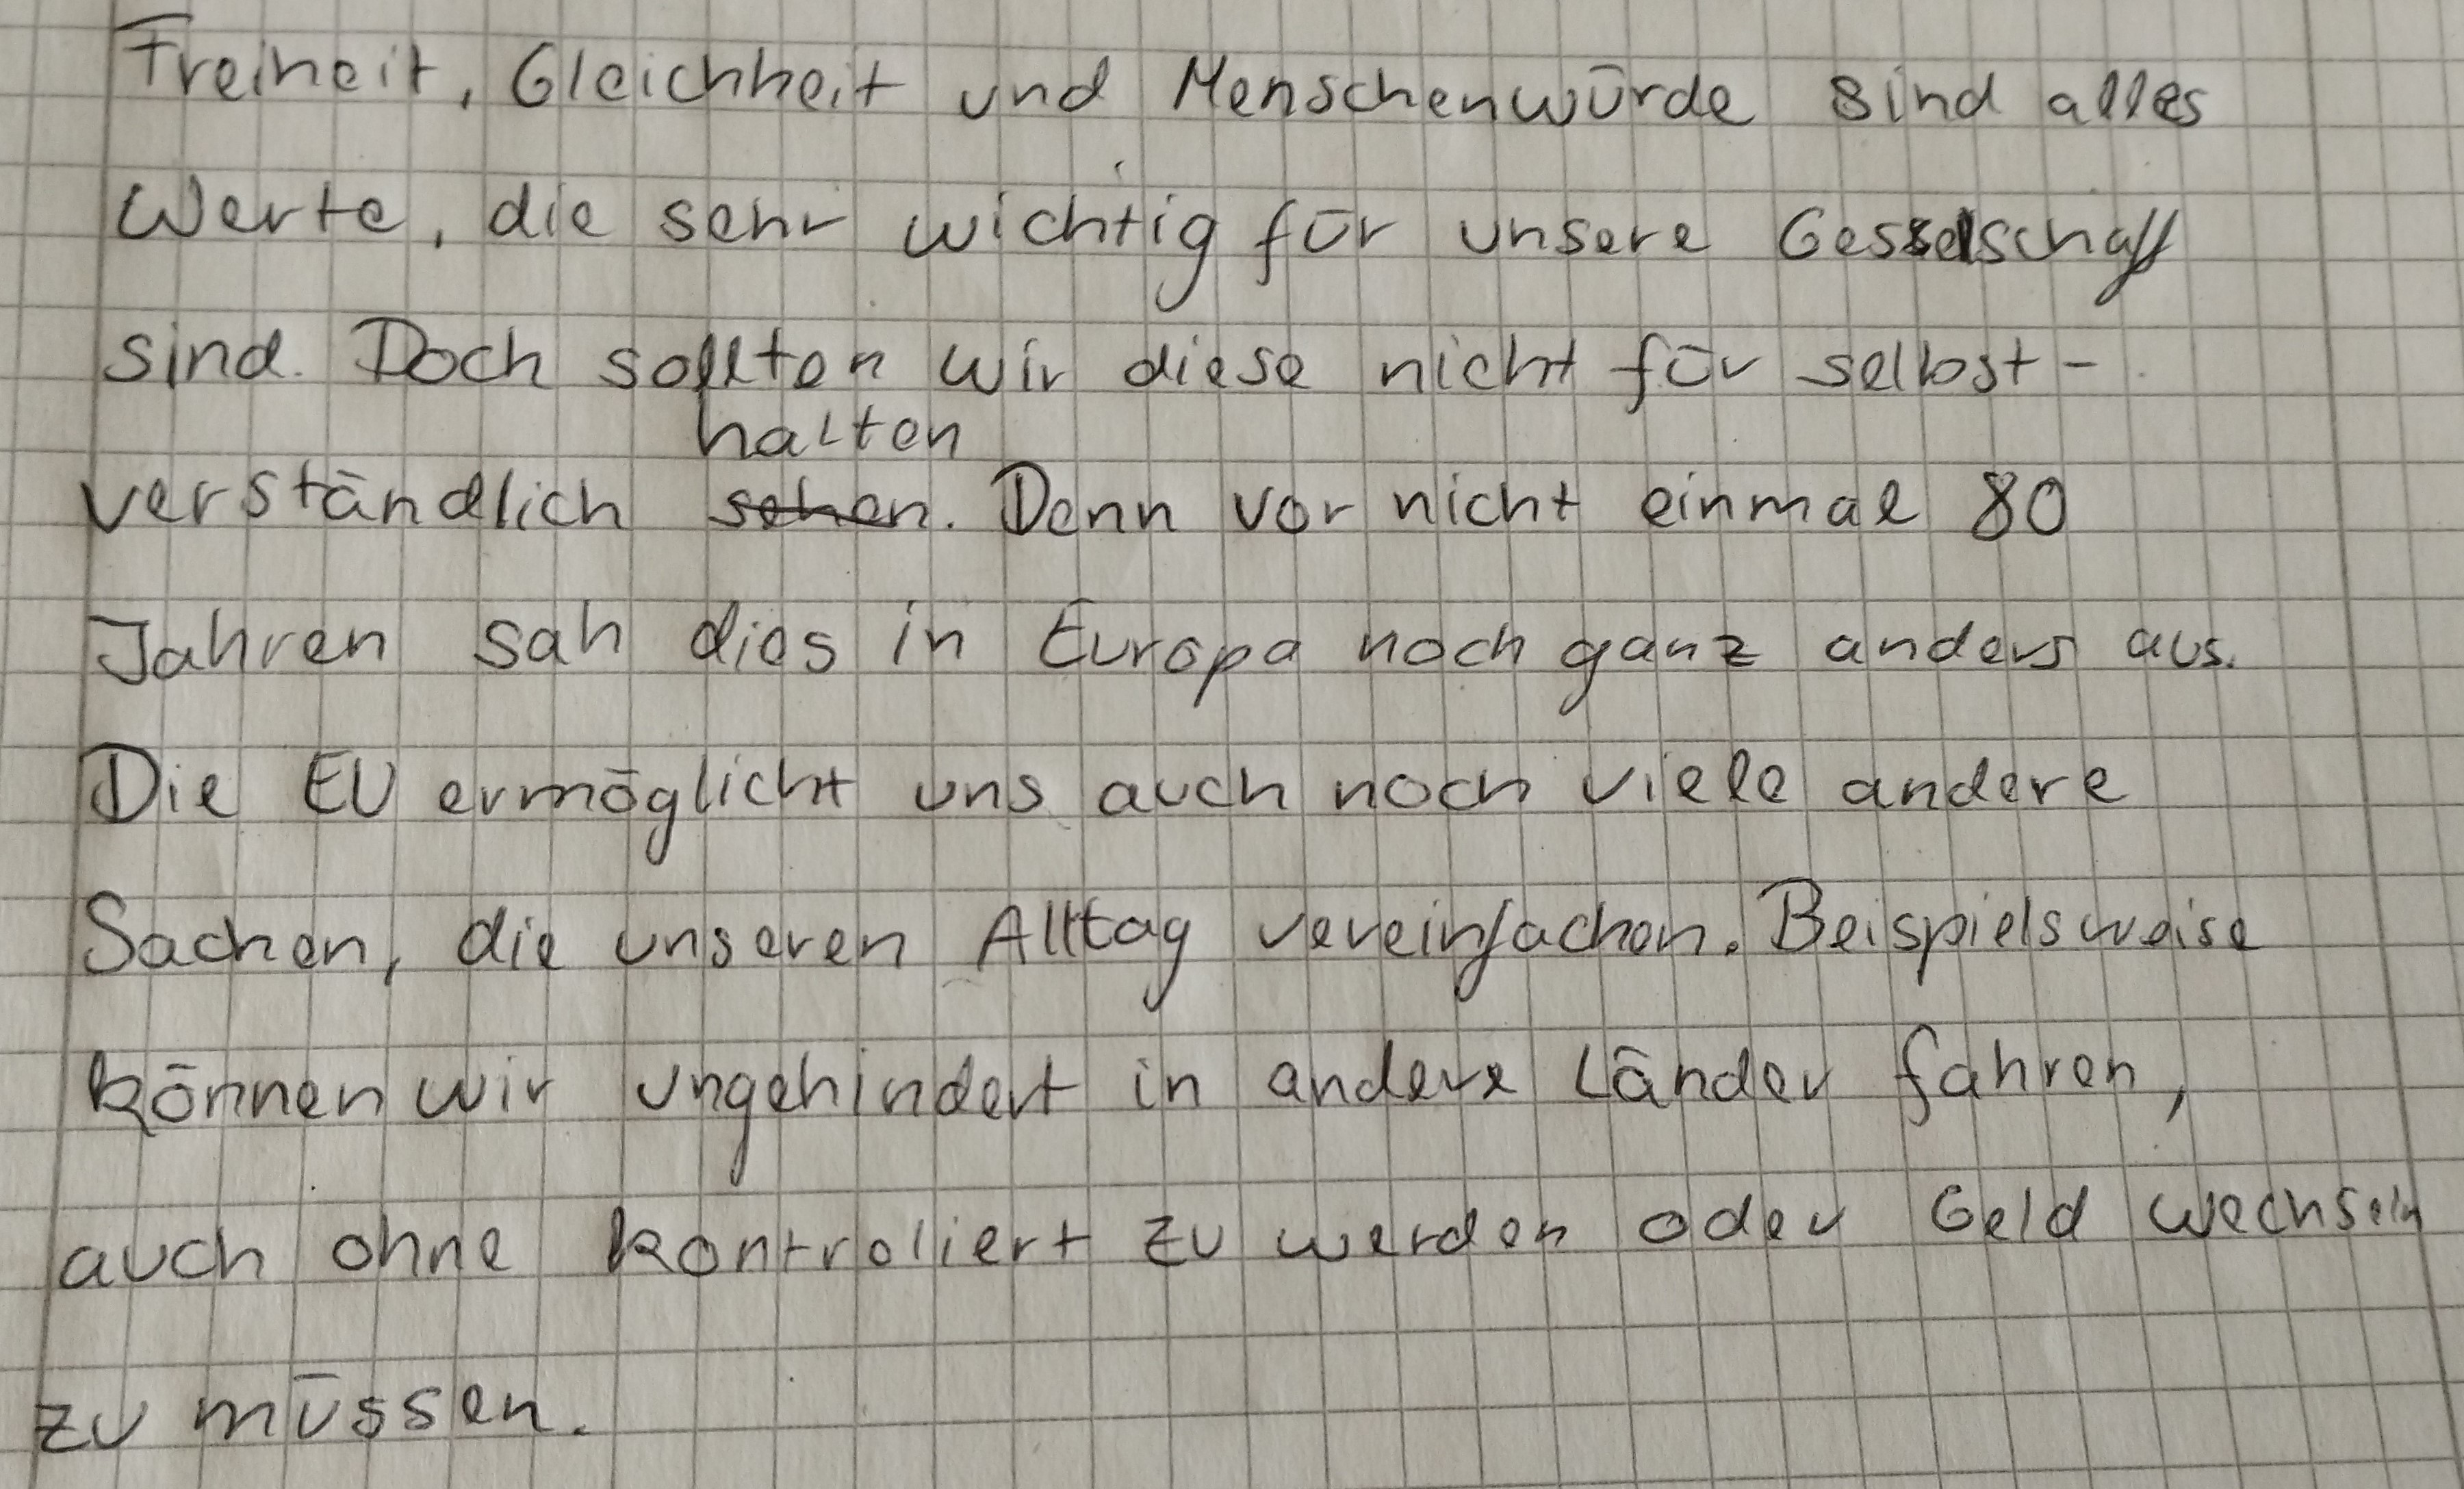 Freiheit, Gleichheit und Menschenwürde sind alles
Werte, die sehr wichtig für unsere Gesselschaft
sind. Doch sollten wir diese nicht für selbst-
halten
verständlich sehen. Denn vor nicht einmal 80
Jahren sah dies in Europa noch ganz anders aus.
Die EU ermöglicht uns auch noch viele andere
Sachen, die unseren Alltag vereinfachen. Beispielsweise
können wir ungehindert in andere Länder fahren,
auch ohne kontroliert zu werden oder Geld wechseln
zu müssen.